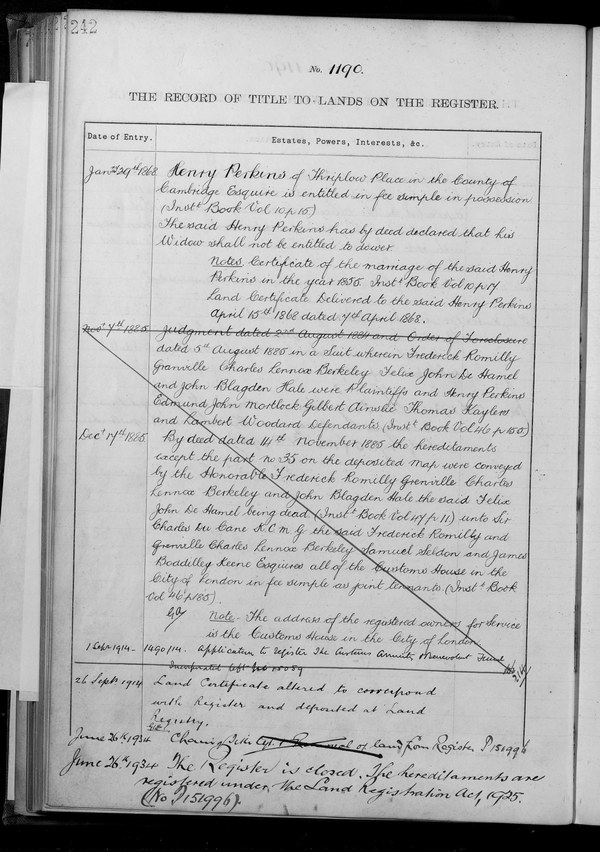 242
No. 1190.
THE RECORD OF TITLE TO LANDS ON THE REGISTER.
Date of Entry.
Estates, Powers, Interests, &c.
Jany 29th 1868
Henry Perkins of Thriplow Place in the County of
Cambridge Esquire is entitled in fee simple in possession
(Instt Book Vol 10 p 15)
The said Henry Perkins has by deed declared that his
Widow shall not be entitled to dower.
Notes Certificate of the marriage of the said Henry
Perkins in the year 1855 Instt Book Vol 10 p 17
Land Certificate Delivered to the said Henry Perkins
April 15th 1868 dated 7th April 1868.
Novr 7th 1885
Judgment dated 2nd August 1884 and Order of Foreclosure
dated 5th August 1885 in a Suit wherein Frederick Romilly
Granville Charles Lennox Berkeley Felix John De Hamel
and John Blagden Hale were Plaintiffs and Henry Perkins
Edmund John Mortlock Gilbert Ainslie Thomas
and Lambert Woodard Defendants (Instt Book Vol 46 p 155)
Decr 17th 1885
By deed dated 14th November 1885 the hereditaments
except the part no 35 on the deposited map were conveyed
by the Honorable Frederick Romilly Grenville Charles
Lennox Berkeley and John Blagden Hale the said Felix
John De Hamel being dead (Instt Book Vol 47 p 11) unto Sir
Charles Du Cane K.C.M.G. the said Frederick Romilly and
Grenville Charles Lennox Berkeley Samuel Seldon and James
Boddilley Keene Esquires all of the Customs House in the
City of London in fee simple as joint tennants. (Instt Book
Vol 46 p 185)
Note - The address of the registered owners for Service
is the Customs House in the City of London
1 Septr 1914 -
1490/14. Application to register The Customs Annuity Benevolent Fund
Incorporated
26 Septr 1914
Land Certificate altered to correspond
with Register and deposited at Land
Registry.
June 26th, 1934
Charing Title of land from Register P 151996
June 26th, 1934
The Register is closed. The hereditaments are
registered under the Land Registration Act, 1925.
(No. P 151996).